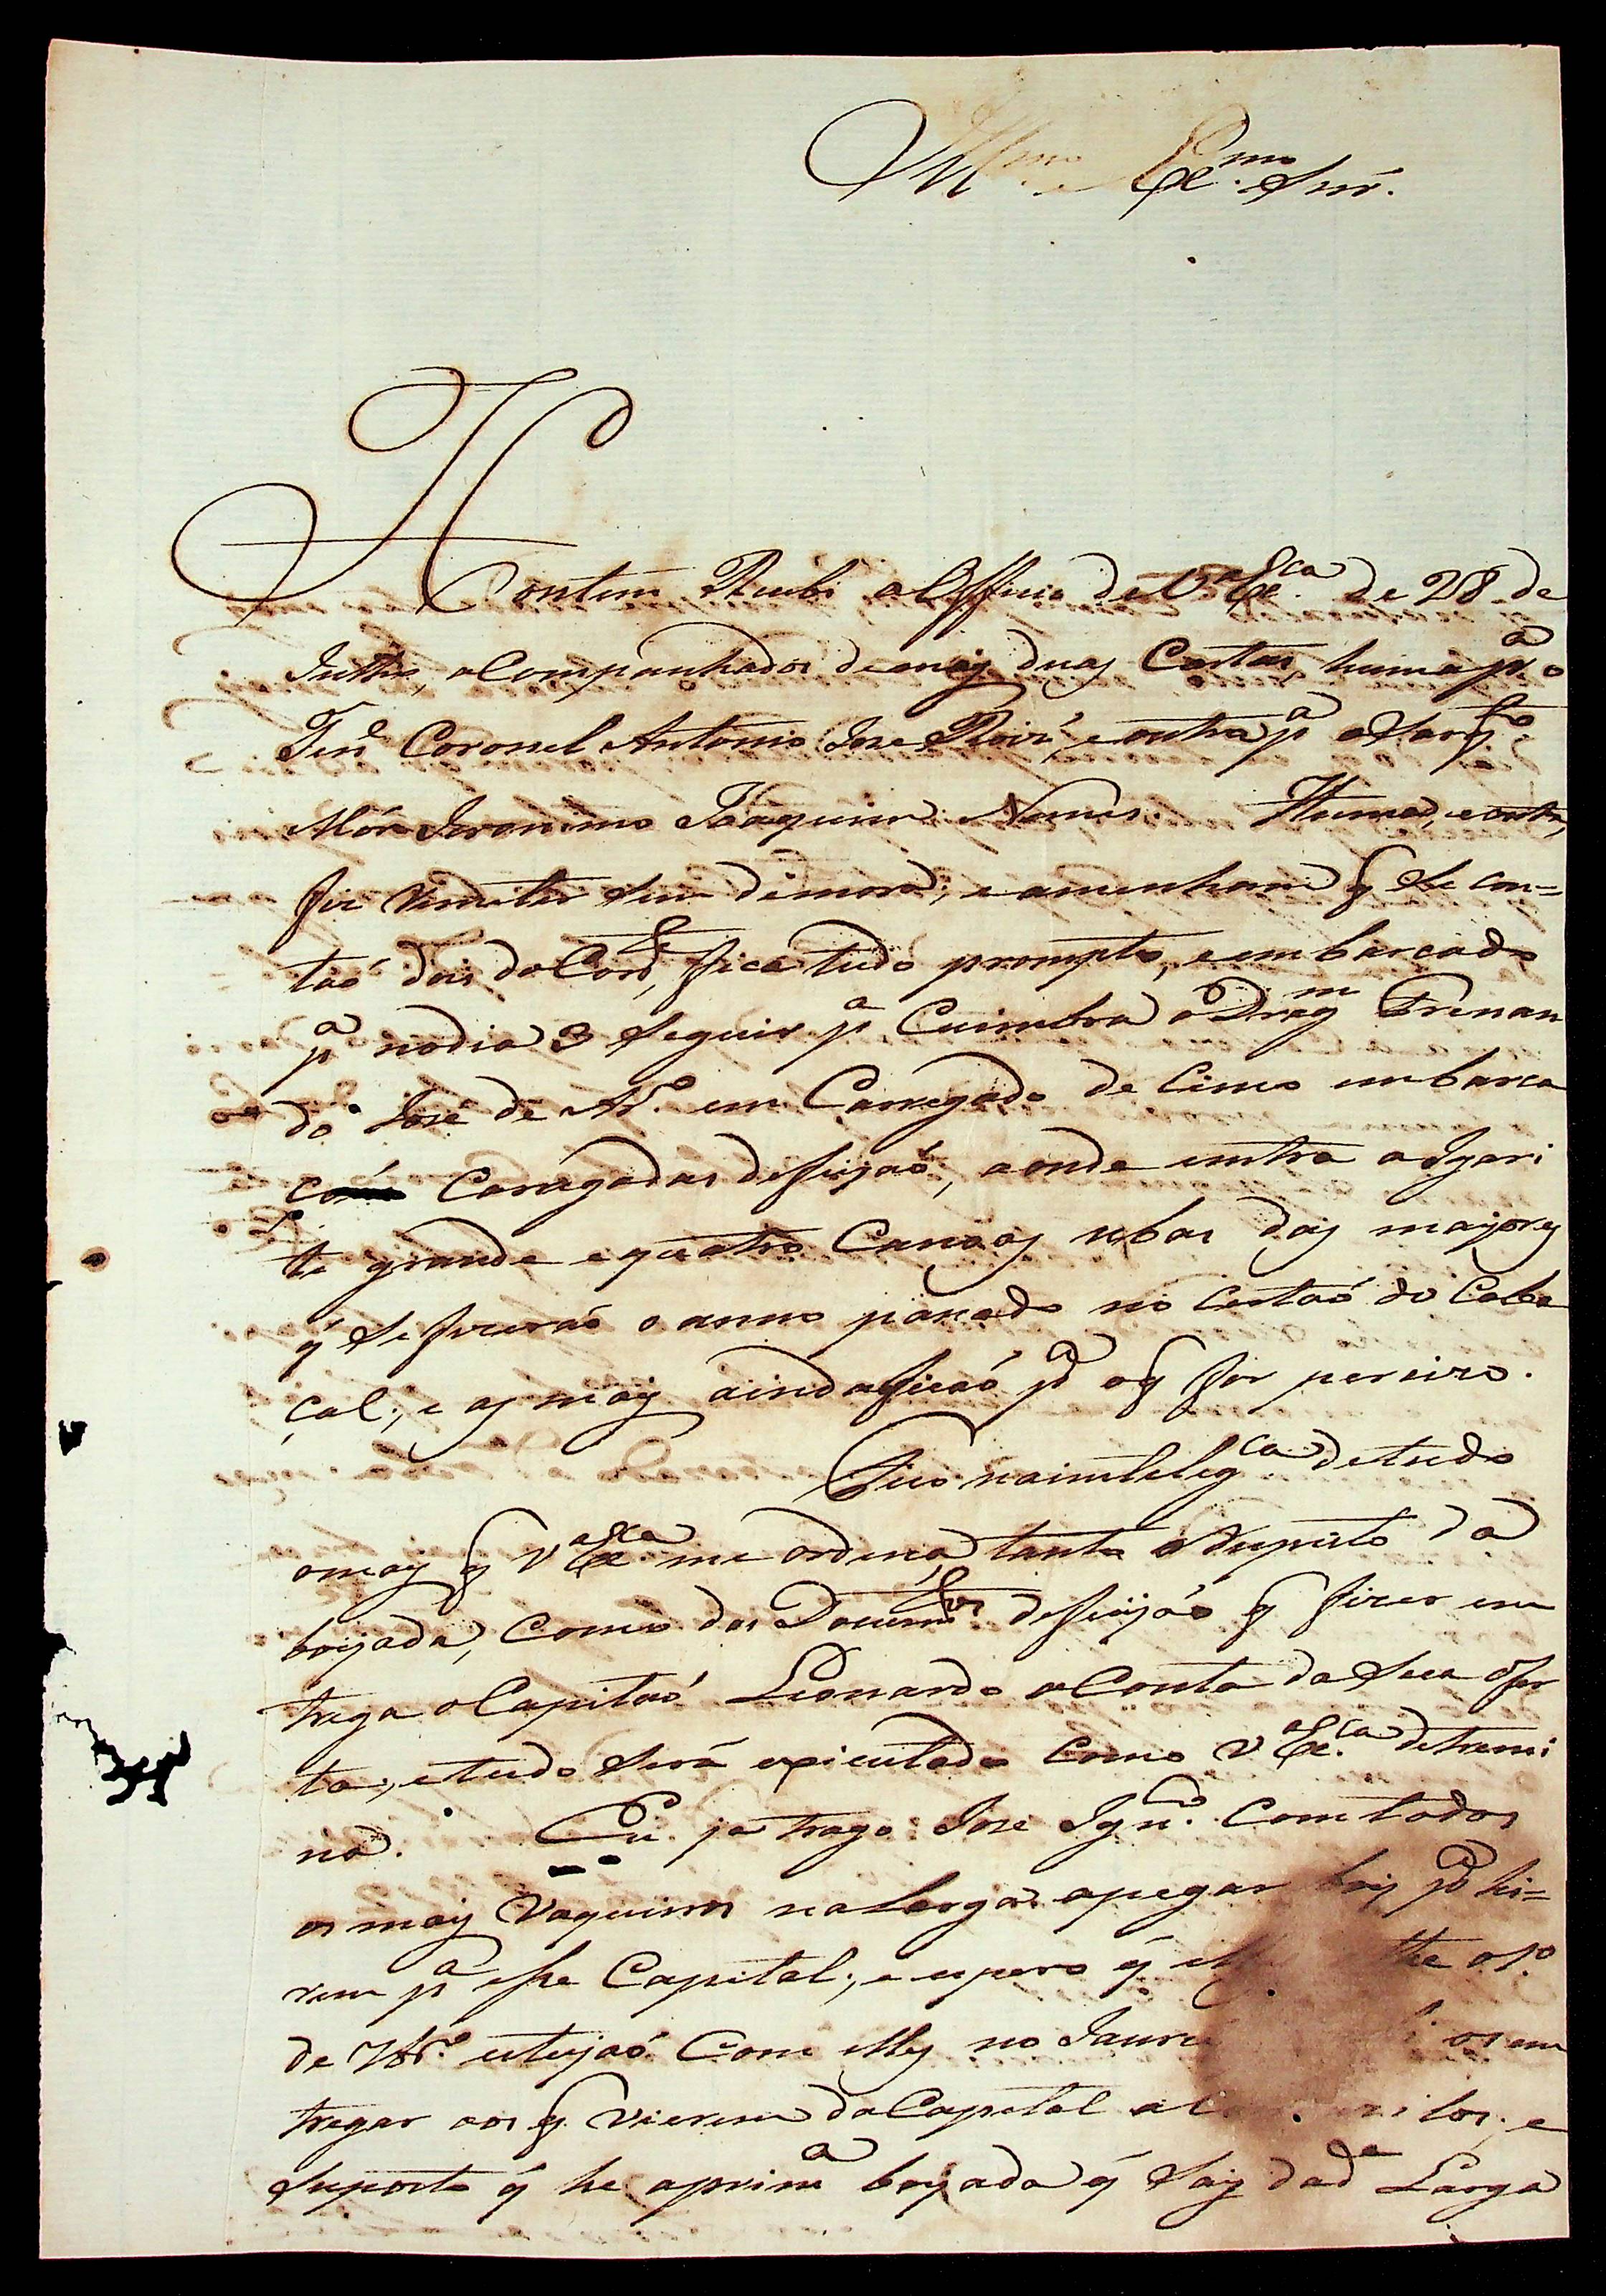 Ill.mo e Ex.mo Snr.
Hontem Recebi o Officio de V.a Ex.ca de 28 de
Julho, acompanhados de mais duas Cartas, huma p.a o
Ten.e Coronel Antonio Jose Roiz', e outra p.a o Sarg.to
Mór Jeronimo Joaquim Nunes. Huma, e outra,
fiz remeter sem demora; e amenham q̃ se con=
taõ dois do Corr.e, fica tudo prompto, e embarcado
p.a no dia 3 seguir p.a Cuimbra o Drag.m Fernan
do José de Ar.o em Carregado de cinco embarca
coís Carregadas de feijaõ, aonde entra a Igari
te grande e quatro Canoas ubas das mayores
q̃ se fizeraõ o anno pasado no Certaõ do Caba
çal; e as mais ainda ficaõ p.a o q̃ for percizo.
Fico na intelig.ca de tudo
o mais q̃ V.a Ex.ca me ordena, tanto a Respeito da
boyada, como dos Docum.tos de feijaõ q̃ fizer em
trega o Capitaõ Leonardo a Conta da sua ofer
ta, e tudo será exicutado como V.a Ex.ca detremi
na. Eu ja trago Jose Ign.o com todos
os mais Vaqueiros na Larga a pegar bois p.a hi=
rem p.a esse Capital; e espero q̃ the o 1.o
de 7br.o estejaõ com elles no Jauru os em
tregar aos q̃ vierem da Capital a los; e
suposto q̃ he a prim.a boyada q̃ say dad.a Larga